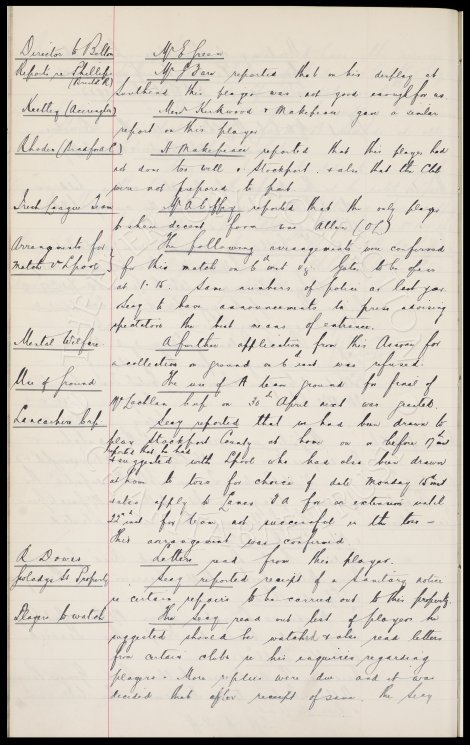 Director to Bolton Mr E Green
Reports re Phillips Mr J Sarr reported that on his display at
(Ronald R) Southend this player was not good enough for us
Keetley (Accrington) Messrs Kirkwood & Makepeace gave a similar
report on this player
Rhodes (Bradford C) A Makepeace reported that this player had
not done too well v Stockport & also that the Club
were not prepared to part.
Irish League Game reported that the only player
to show decent form was
Arrangements for The following arrangements were confirmed
Match v L'pool for this match on 6th inst Gates to be open
at 1.15. Same numbers of police as last year
Secy to have announcements in press advising
spectators the best means of entrance.
Mental Welfare A further application from this Assocn for
a collection on ground on 6th inst was refused.
Use of Ground The use of A team ground for final of
McLachlan Cup on 30th April next was granted.
Lancashire Cup Secy reported that we had been drawn to
play Stockport County at home on or before 17th inst
reported that he had
& suggested with L'pool who had also been drawn
at home to toss for choice of date Monday 15th inst
& also apply to Lancs F A for an extension until
22nd inst for team not successful in the toss –
This arrangement was confirmed.
A. Dawes Letters read from this player.
Goodlass St Property Secy reported receipt of a sanitary notice
re certain repairs to be carried out to this property.
Players to watch The Secy read out list of players he
suggested should be watched & also read letters
from certain clubs re his inquiries regarding
players. More replies were due and it was
decided that after receipt of same the Secy